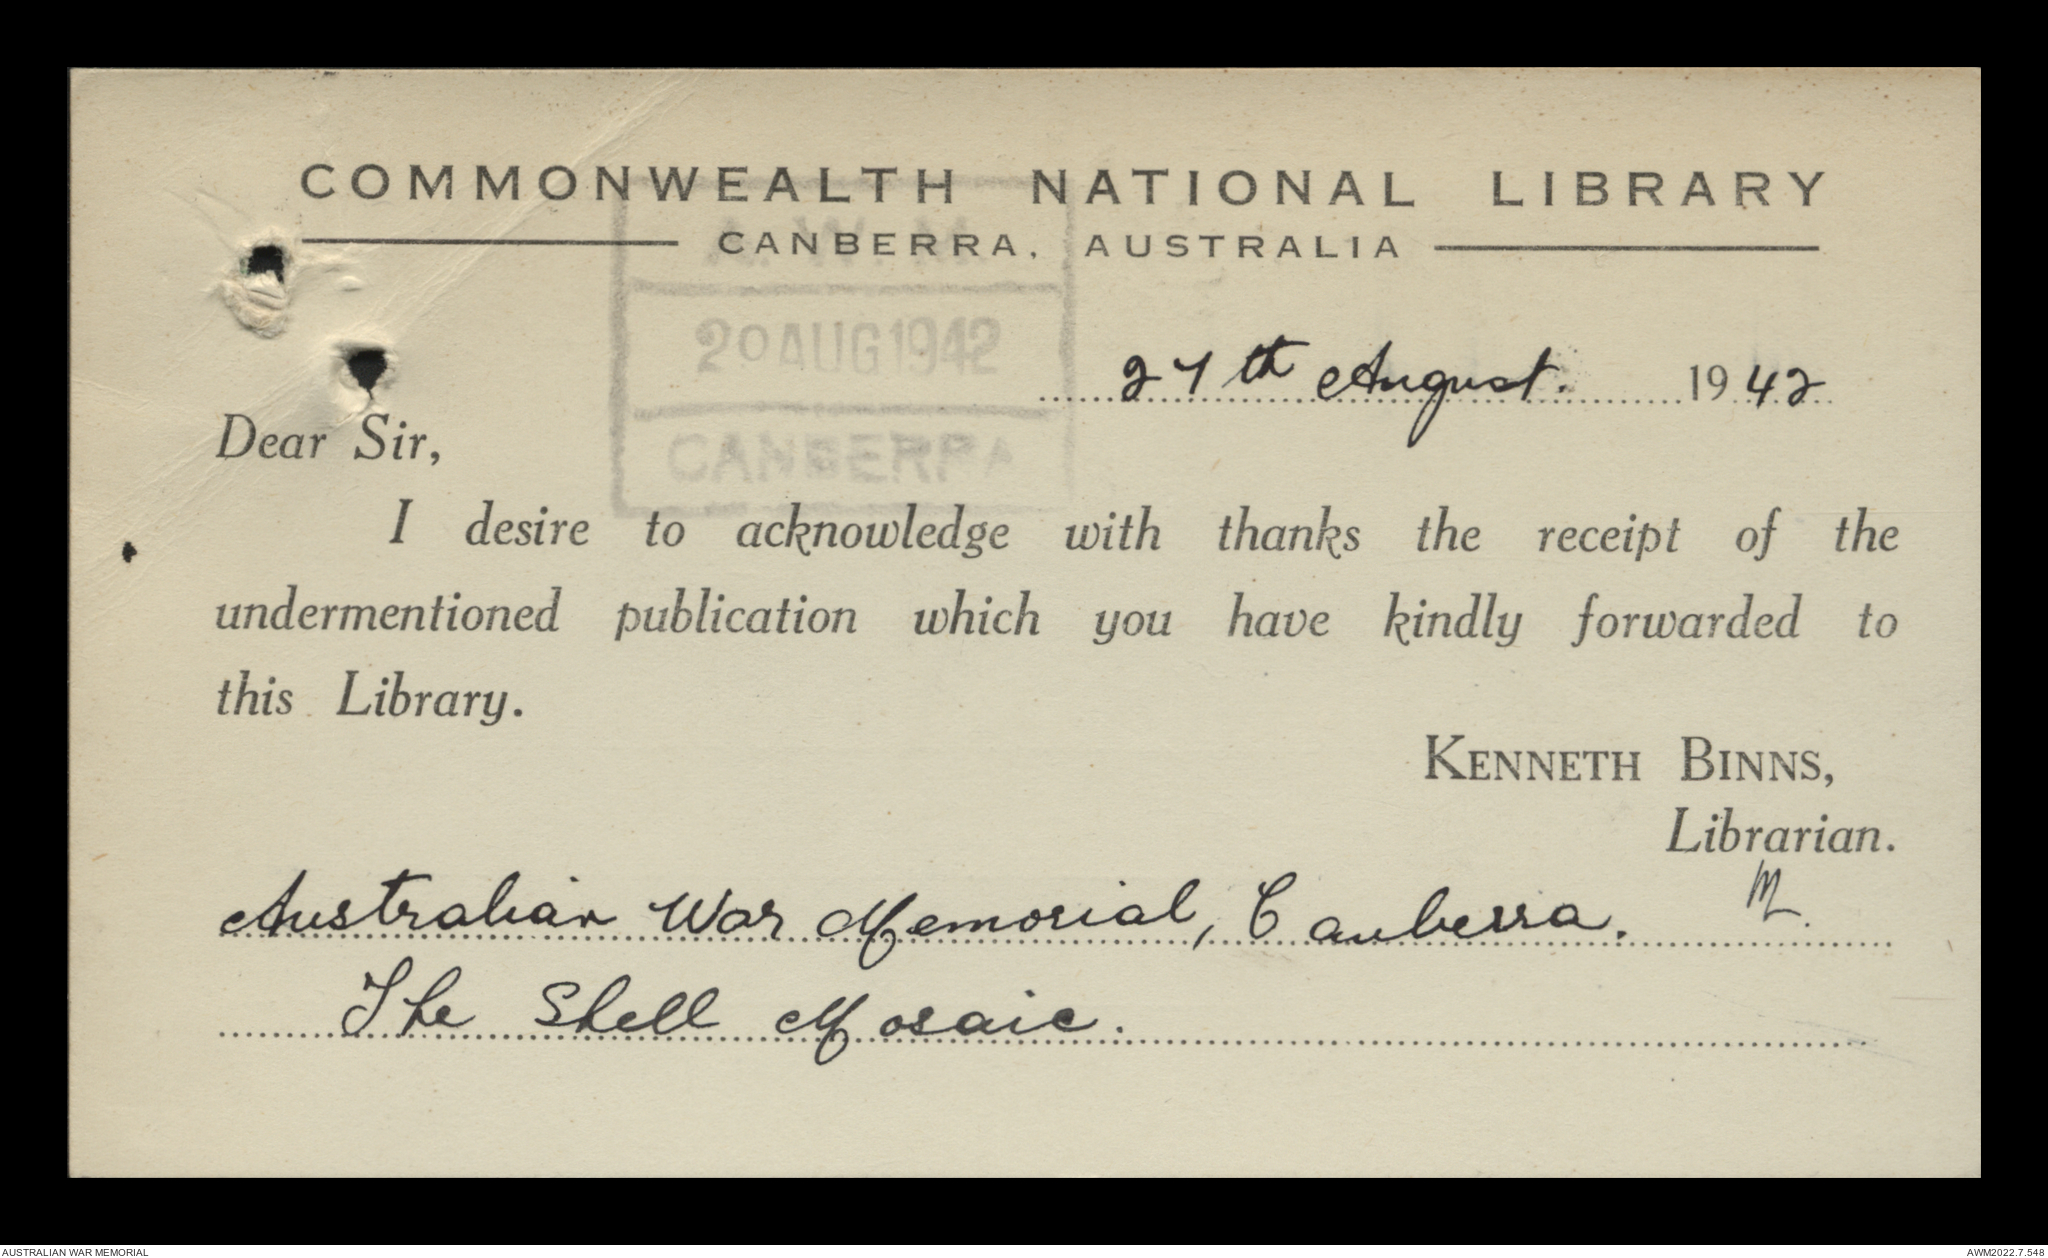 COMMONWEALTH NATIONAL LIBRARY
CANBERRA, AUSTRALIA
A.W.M.
20 AUG 1942
CANBERRA
27th August. 1942
Dear Sir,
I desire to acknowledge with thanks the receipt of the
undermentioned publication which you have kindly forwarded to
this Library.
KENNETH BINNS,
Librarian.
Australian War Memorial, Canberra.
The Shell Mosaic.
AUSTRALIAN WAR MEMORIAL
AWM2022.7.548